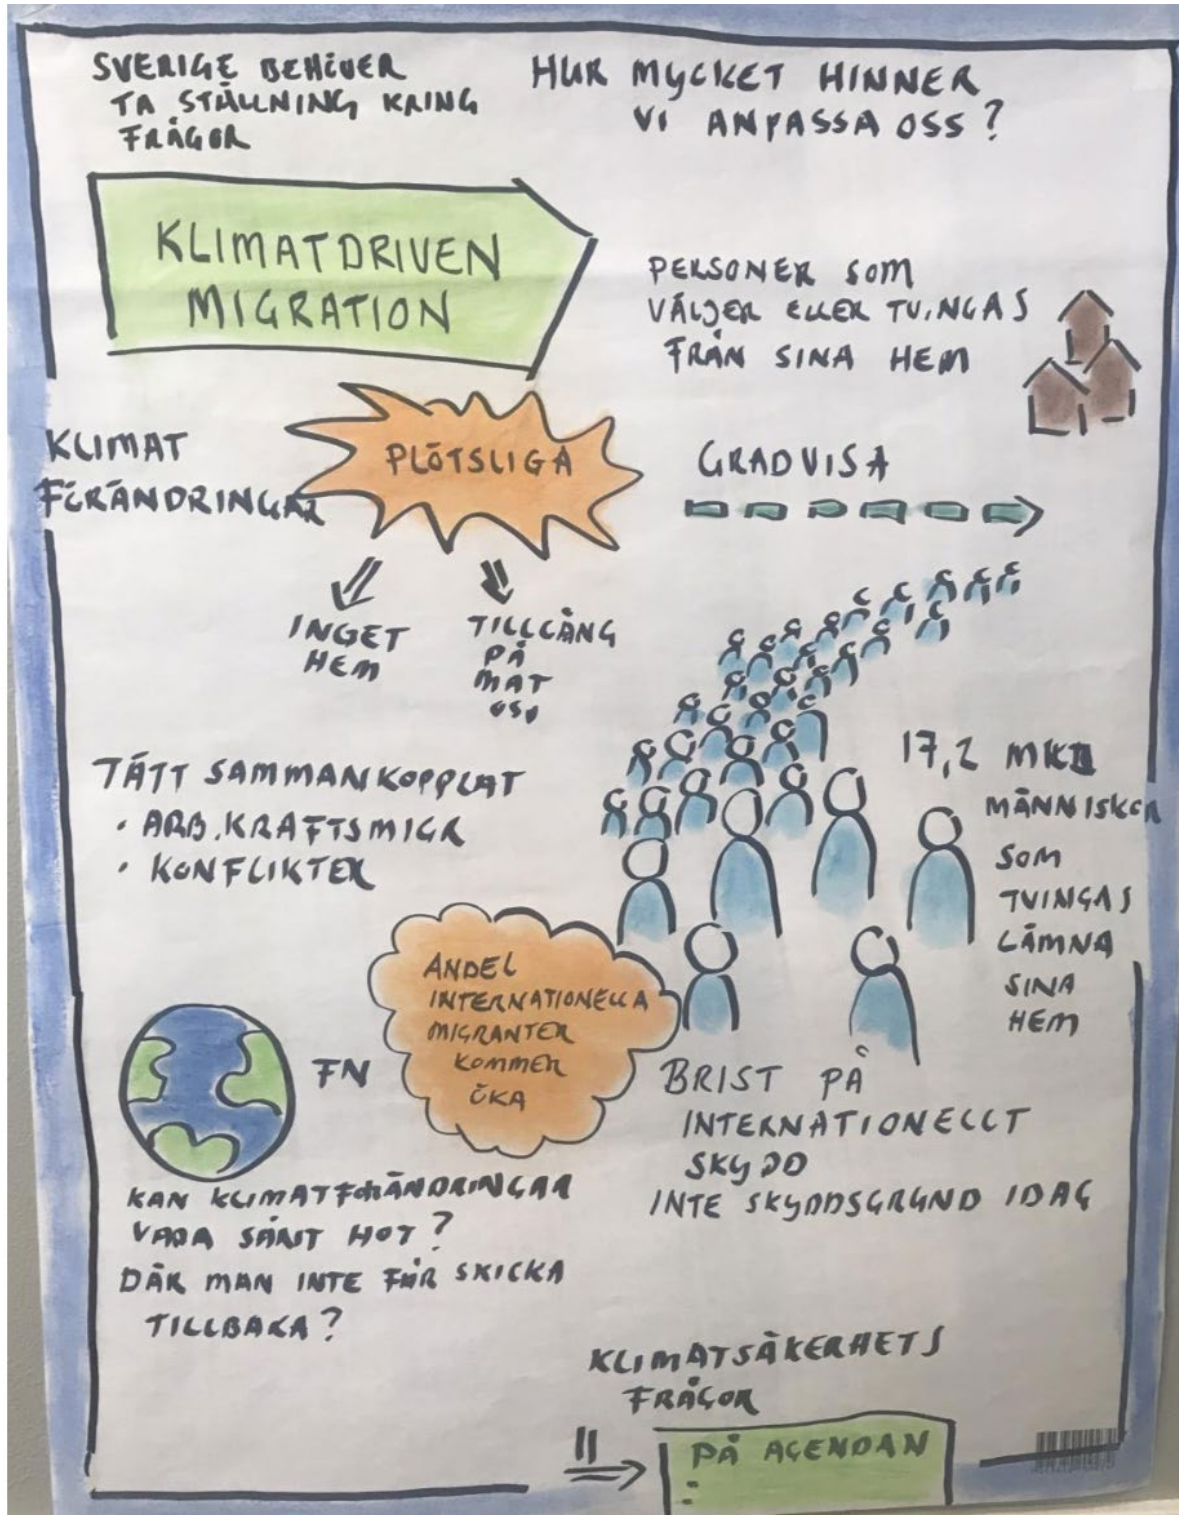 SVERIGE BEHÖVER
TA STÄLLNING KRING
FRÅGOR
HUR MYCKET HINNER
VI ANPASSA OSS?
KLIMATDRIVEN
MIGRATION
PERSONER SOM
VÄLJER ELLER TVINGAS
FRÅN SINA HEM
KLIMAT
FÖRÄNDRINGAR
PLÖTSLIGA
GRADVISA
INGET
HEM
TILLGÅNG
PÅ
MAT
OSV
TÄTT SAMMANKOPPLAT
• ARB.KRAFTSMIGR
• KONFLIKTER
17,2
MÄNNISKOR
SOM
TVINGAS
LÄMNA
SINA
HEM
ANDEL
INTERNATIONELLA
MIGRANTER
KOMMER
ÖKA
FN
BRIST PÅ
INTERNATIONELLT
SKYDD
INTE SKYDDSGRUND IDAG
KAN KLIMATFÖRÄNDRINGAR
VARA SÅNT HOT?
DÄR MAN INTE FÅR SKICKA
TILLBAKA?
KLIMATSÄKERHETS
FRÅGOR
PÅ AGENDAN